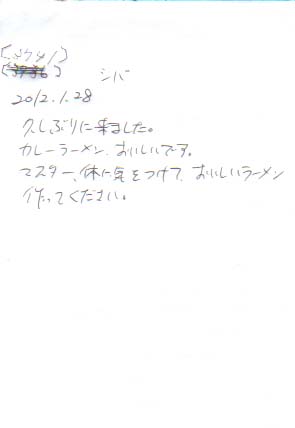 シバ
2012.1.28
久しぶりに来ました。
カレーラーメン、おいしいでーす。
マスター、体に気をつけて、おいしいラーメン
作ってください。